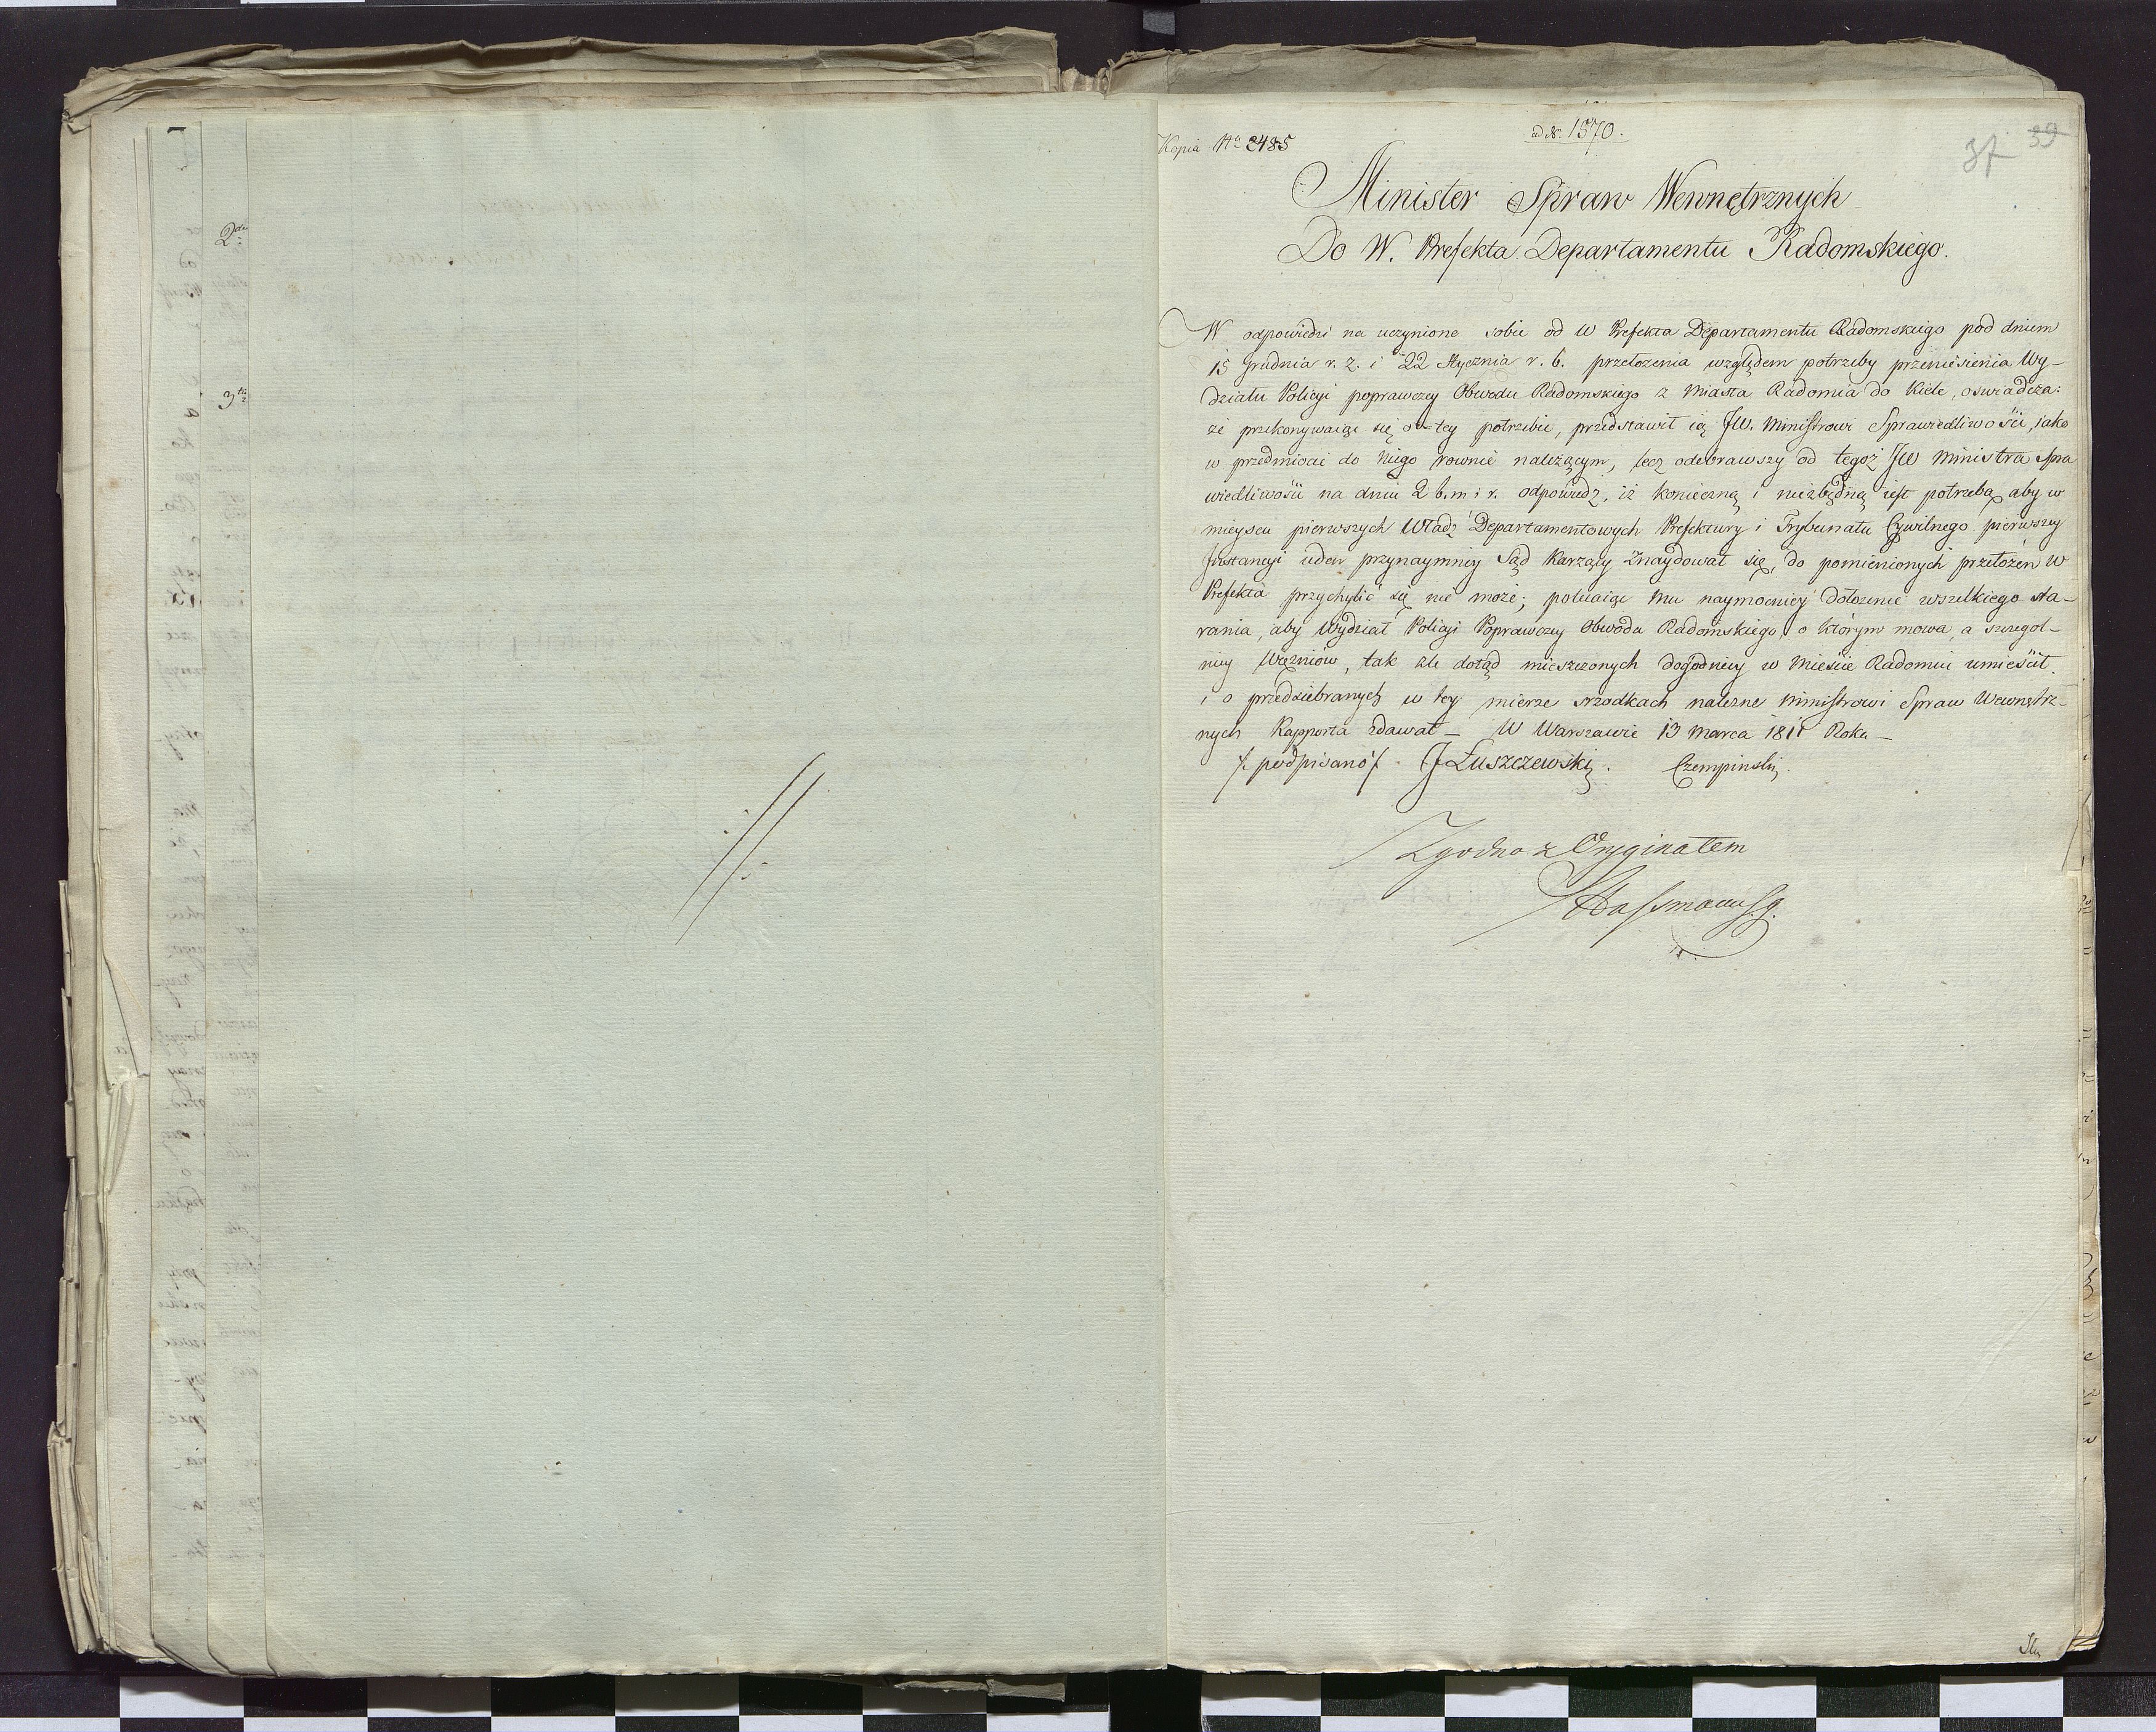 2do
3tio
Kopia No 2485
ad No 1570.
37 39
Minister Spraw Wewnętrznych
Do W. Prefekta Departamentu Radomskiego.
W odpowiedzi na uczynione sobie od W Prefekta Departamentu Radomskiego pod dniem
15 Grudnia r. z. i 22 Stycznia r. b. przełożenia względem potrzeby przeniesienia Wy-
działu Policyi poprawczey Obwodu Radomskiego z Miasta Radomia do Kielc, oswiadcza:
że przekonywaiąc się o tey potrzebie, przedstawił ią JW. Ministrowi Sprawiedliwości, jako
w przedmiocie do Niego rownie należącym, lecz odebrawszy od tegoż JW Ministra Spra
wiedliwości na dniu 2 b. m i r. odpowiedz, iż konieczną i niezbędną iest potrzebą aby w
mieyscu pierwszych Władz Departamentowych Prefektury i Trybunału Cywilnego pierwszey
Instancyi ieden przynaymniey Sąd Karzący znaydował się, do pomienionych przełożeń W
Prefekta przychylić się nie może; polecaiąc Mu naymocniey dołożenie wszelkiego sta-
rania, aby Wydział Policyi Poprawczey Obwodu Radomskiego, o którym mowa, a szczegol-
niey Więzniow, tak źle dotąd mieszczonych dogodniey w Mieście Radomiu umieścił
i o przedsiebranych w tey mierze srzodkach należne Ministrowi Spraw Wewnętrz-
nych Rapporta zdawał – W Warszawie 13 Marca 1811 Roku –
/: podpisano :/ J Łuszczewski. Czempinski.
Zgodno z Oryginałem